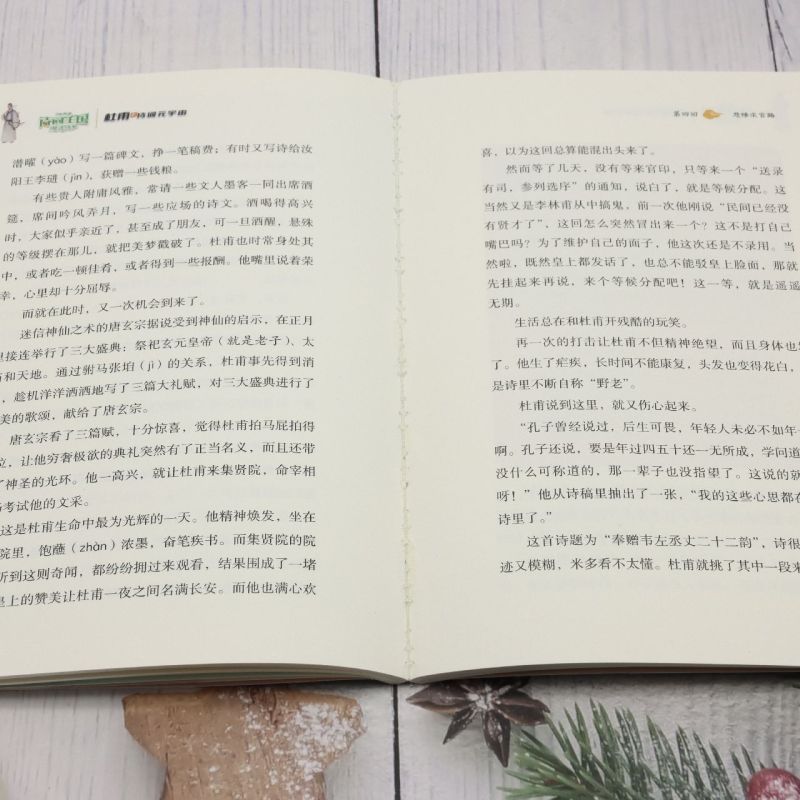 诗词王国
杜甫的诗词元宇宙
潜曜（yào）写一篇碑文，挣一笔稿费；有时又写诗给汝
阳王李琎（jìn），获赠一些钱粮。
有些贵人附庸风雅，常请一些文人墨客一同出席酒
筵，席间吟风弄月，写一些应场的诗文。酒喝得高兴
时，大家似乎亲近了，甚至成了朋友，可一旦酒醒，悬殊
的等级摆在那儿，就把美梦戳破了。杜甫也时常身处其
中，或者吃一顿佳肴，或者得到一些报酬。他嘴里说着荣
幸，心里却十分屈辱。
而就在此时，又一次机会到来了。
迷信神仙之术的唐玄宗据说受到神仙的启示，在正月
里接连举行了三大盛典：祭祀玄元皇帝（就是老子）、太
和天地。通过驸马张垍（jì）的关系，杜甫事先得到消
，趁机洋洋洒洒地写了三篇大礼赋，对三大盛典进行了
美的歌颂，献给了唐玄宗。
唐玄宗看了三篇赋，十分惊喜，觉得杜甫拍马屁拍得
位，让他穷奢极欲的典礼突然有了正当名义，而且还带
了神圣的光环。他一高兴，就让杜甫来集贤院，命宰相
考试他的文采。
这是杜甫生命中最为光辉的一天。他精神焕发，坐在
院里，饱蘸（zhàn）浓墨，奋笔疾书。而集贤院的院
听到这则奇闻，都纷纷拥过来观看，结果围成了一堵
皇上的赞美让杜甫一夜之间名满长安。而他也满心欢
第四回
悲惨求官路
喜，以为这回总算能混出头来了。
然而等了几天，没有等来官印，只等来一个“送录
有司，参列选序”的通知，说白了，就是等候分配。这
当然又是李林甫从中搞鬼，前一次他刚说“民间已经没
有贤才了”，这回怎么突然冒出来一个？这不是打自己
嘴巴吗？为了维护自己的面子，他这次还是不录用。当
然啦，既然皇上都发话了，也总不能驳皇上脸面，那就
先挂起来再说，来个等候分配吧！这一等，就是遥遥
无期。
生活总在和杜甫开残酷的玩笑。
再一次的打击让杜甫不但精神绝望，而且身体也
了。他生了疟疾，长时间不能康复，头发也变得花白，
是诗里不断自称“野老”。
杜甫说到这里，就又伤心起来。
“孔子曾经说过，后生可畏，年轻人未必不如年
啊。孔子还说，要是年过四五十还一无所成，学问道
没什么可称道的，那一辈子也没指望了。这说的就
呀！”他从诗稿里抽出了一张，“我的这些心思都在
诗里了。”
这首诗题为“奉赠韦左丞丈二十二韵”，诗很
迹又模糊，米多看不太懂。杜甫就挑了其中一段来